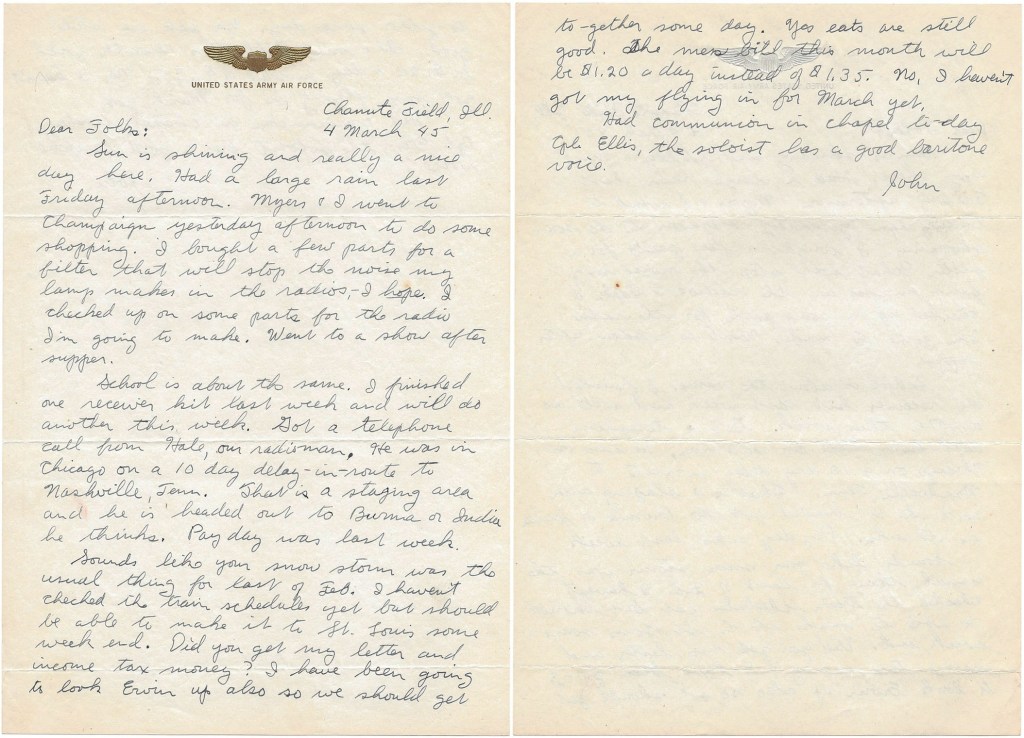 UNITED STATES ARMY AIR FORCE
Chanute Field, Ill.
4 March 45
Dear Folks:
Sun is shining and really a nice
day here. Had a large rain last
Friday afternoon. Myers & I went to
Champaign yesterday afternoon to do some
shopping. I bought a few parts for a
filter that will stop the noise my
lamp makes in the radios,-I hope. I
checked up on some parts for the radio
I'm going to make. Went to a show after
supper.
School is about the same. I finished
one receiver kit last week and will do
another this week. Got a telephone
call from Hale, our radioman. He was in
Chicago on a 10 day delay-in-route to
Nashville, Tenn. That is a staging area
and he is headed out to Burma or India
he thinks. Pay day was last week.
Sounds like your snow storm was the
usual thing for last of Feb. I haven't
checked the train schedules yet but should
be able to make it to St. Louis some
week end. Did you get my letter and
income tax money? I have been going
to look Erwin up also so we should get
to-gether some day. Yes eats are still
good. The mess bill this month will
be $1.20 a day instead of $1.35. No, I haven't
got my flying in for March yet.
Had communion in chapel to-day
Cpl. Ellis, the soloist has a good baritone
voice.
John